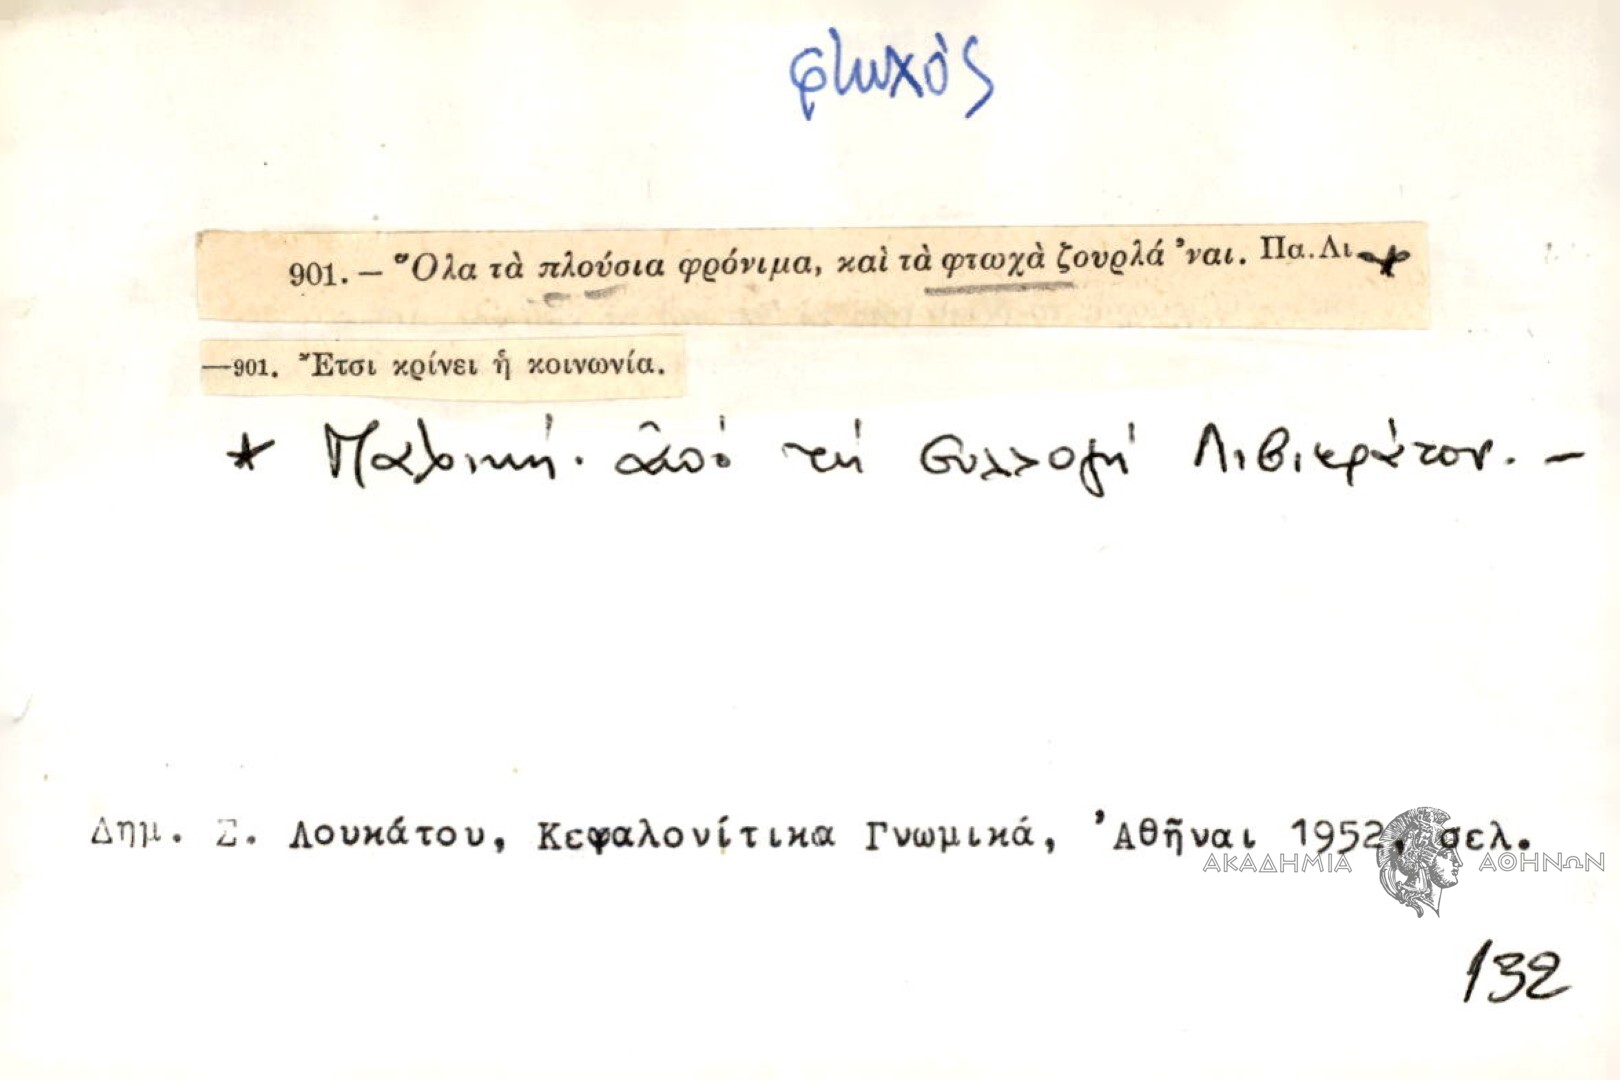 φτωχὸς
901. — Ὅλα τὰ πλούσια φρόνιμα, καὶ τὰ φτωχὰ ζουρλά 'ναι. Πα.Λι *
—901. Ἔτσι κρίνει ἡ κοινωνία.
* Παλικὴ. ἀπὸ τὴ συλλογὴ Λιβιεράτου. —
Δημ. Σ. Λουκάτου, Κεφαλονίτικα Γνωμικά, Ἀθῆναι 1952, σελ.
ΑΚΑΔΗΜΙΑ ΑΘΗΝΩΝ
132